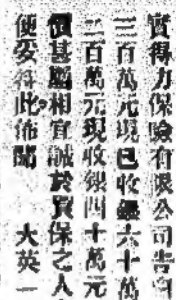 實得力保險有限公司告白
三百萬元現已收銀六十萬
二百萬元現收銀四十萬元
價甚廉相宜誠於買保之人
便妥特此佈聞 大英一